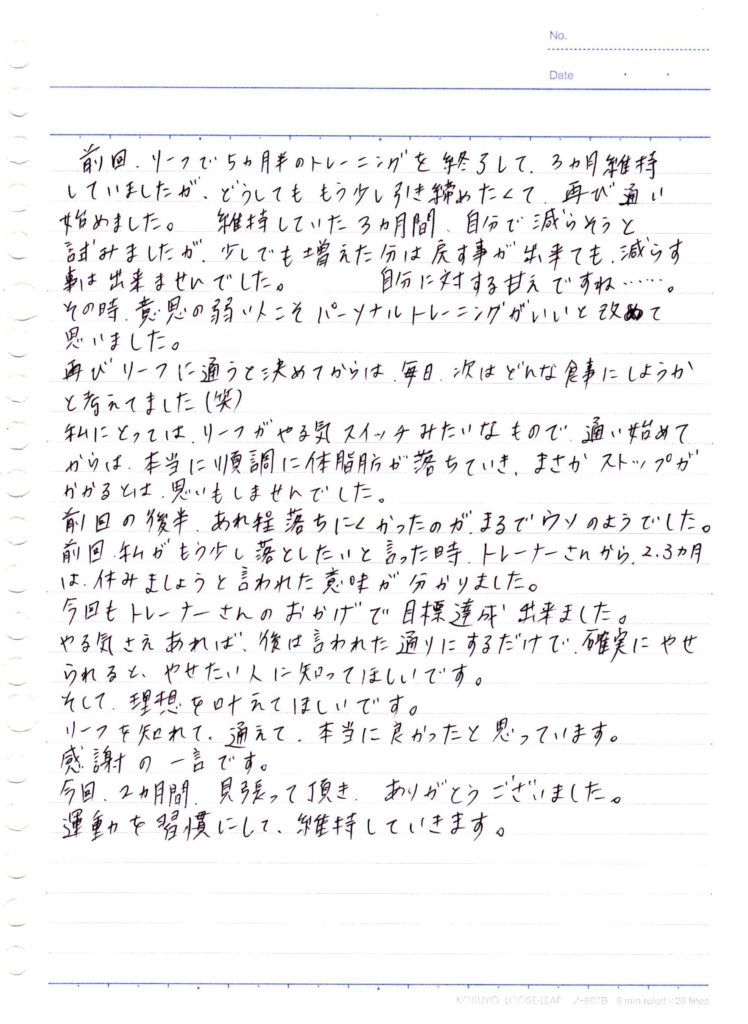 No.
Date
前回、リーフで5ヵ月半のトレーニングを終了して、3ヵ月維持
していましたが、どうしてももう少し引き締めたくて、再び通い
始めました。 維持していた3ヵ月間、自分で減らそうと
試みましたが、少しでも増えた分は戻す事が出来ても、減らす
事は出来ませんでした。 自分に対する甘えですね……。
その時、意思の弱い人こそパーソナルトレーニングがいいと改めて
思いました。
再びリーフに通うと決めてからは、毎日、次はどんな食事にしようか
と考えてました(笑)
私にとっては、リーフがやる気スイッチみたいなもので、通い始めて
からは、本当に順調に体脂肪が落ちていき、まさかストップが
かかるとは、思いもしませんでした。
前回の後半、あれ程落ちにくかったのが、まるでウソのようでした。
前回、私がもう少し落としたいと言った時、トレーナーさんから、2、3ヵ月
は、休みましょうと言われた意味が分かりました。
今回もトレーナーさんのおかげで目標達成出来ました。
やる気さえあれば、後は言われた通りにするだけで、確実にやせ
られると、やせたい人に知ってほしいです。
そして、理想を叶えてほしいです。
リーフを知れて、通えて、本当に良かったと思っています。
感謝の一言です。
今回、2ヵ月間、見張って頂き、ありがとうございました。
運動を習慣にして、維持していきます。
KOKUYO LOOSE-LEAF ノ-807B 6 mm ruled×26 lines